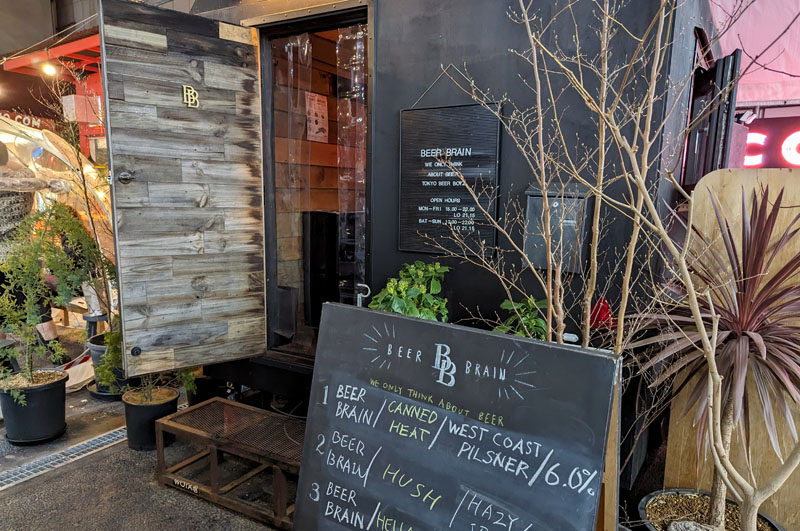 BB
O COM
BEER BRAIN
WE ONLY THINK
ABOUT BEER
TOKYO BEER BOY
OPEN HOURS
MON-FRI 15.00-22.00
LO 21.15
SAT-SUN 13.00-22.00
LO 21.15
CO
BEER BB BRAIN
WE ONLY THINK ABOUT BEER
1 BEER BRAIN / CANNED HEAT / WEST COAST PILSNER / 6.0%
2 BEER BRAIN / HUSH / HAZY
3 BEER BRAIN /